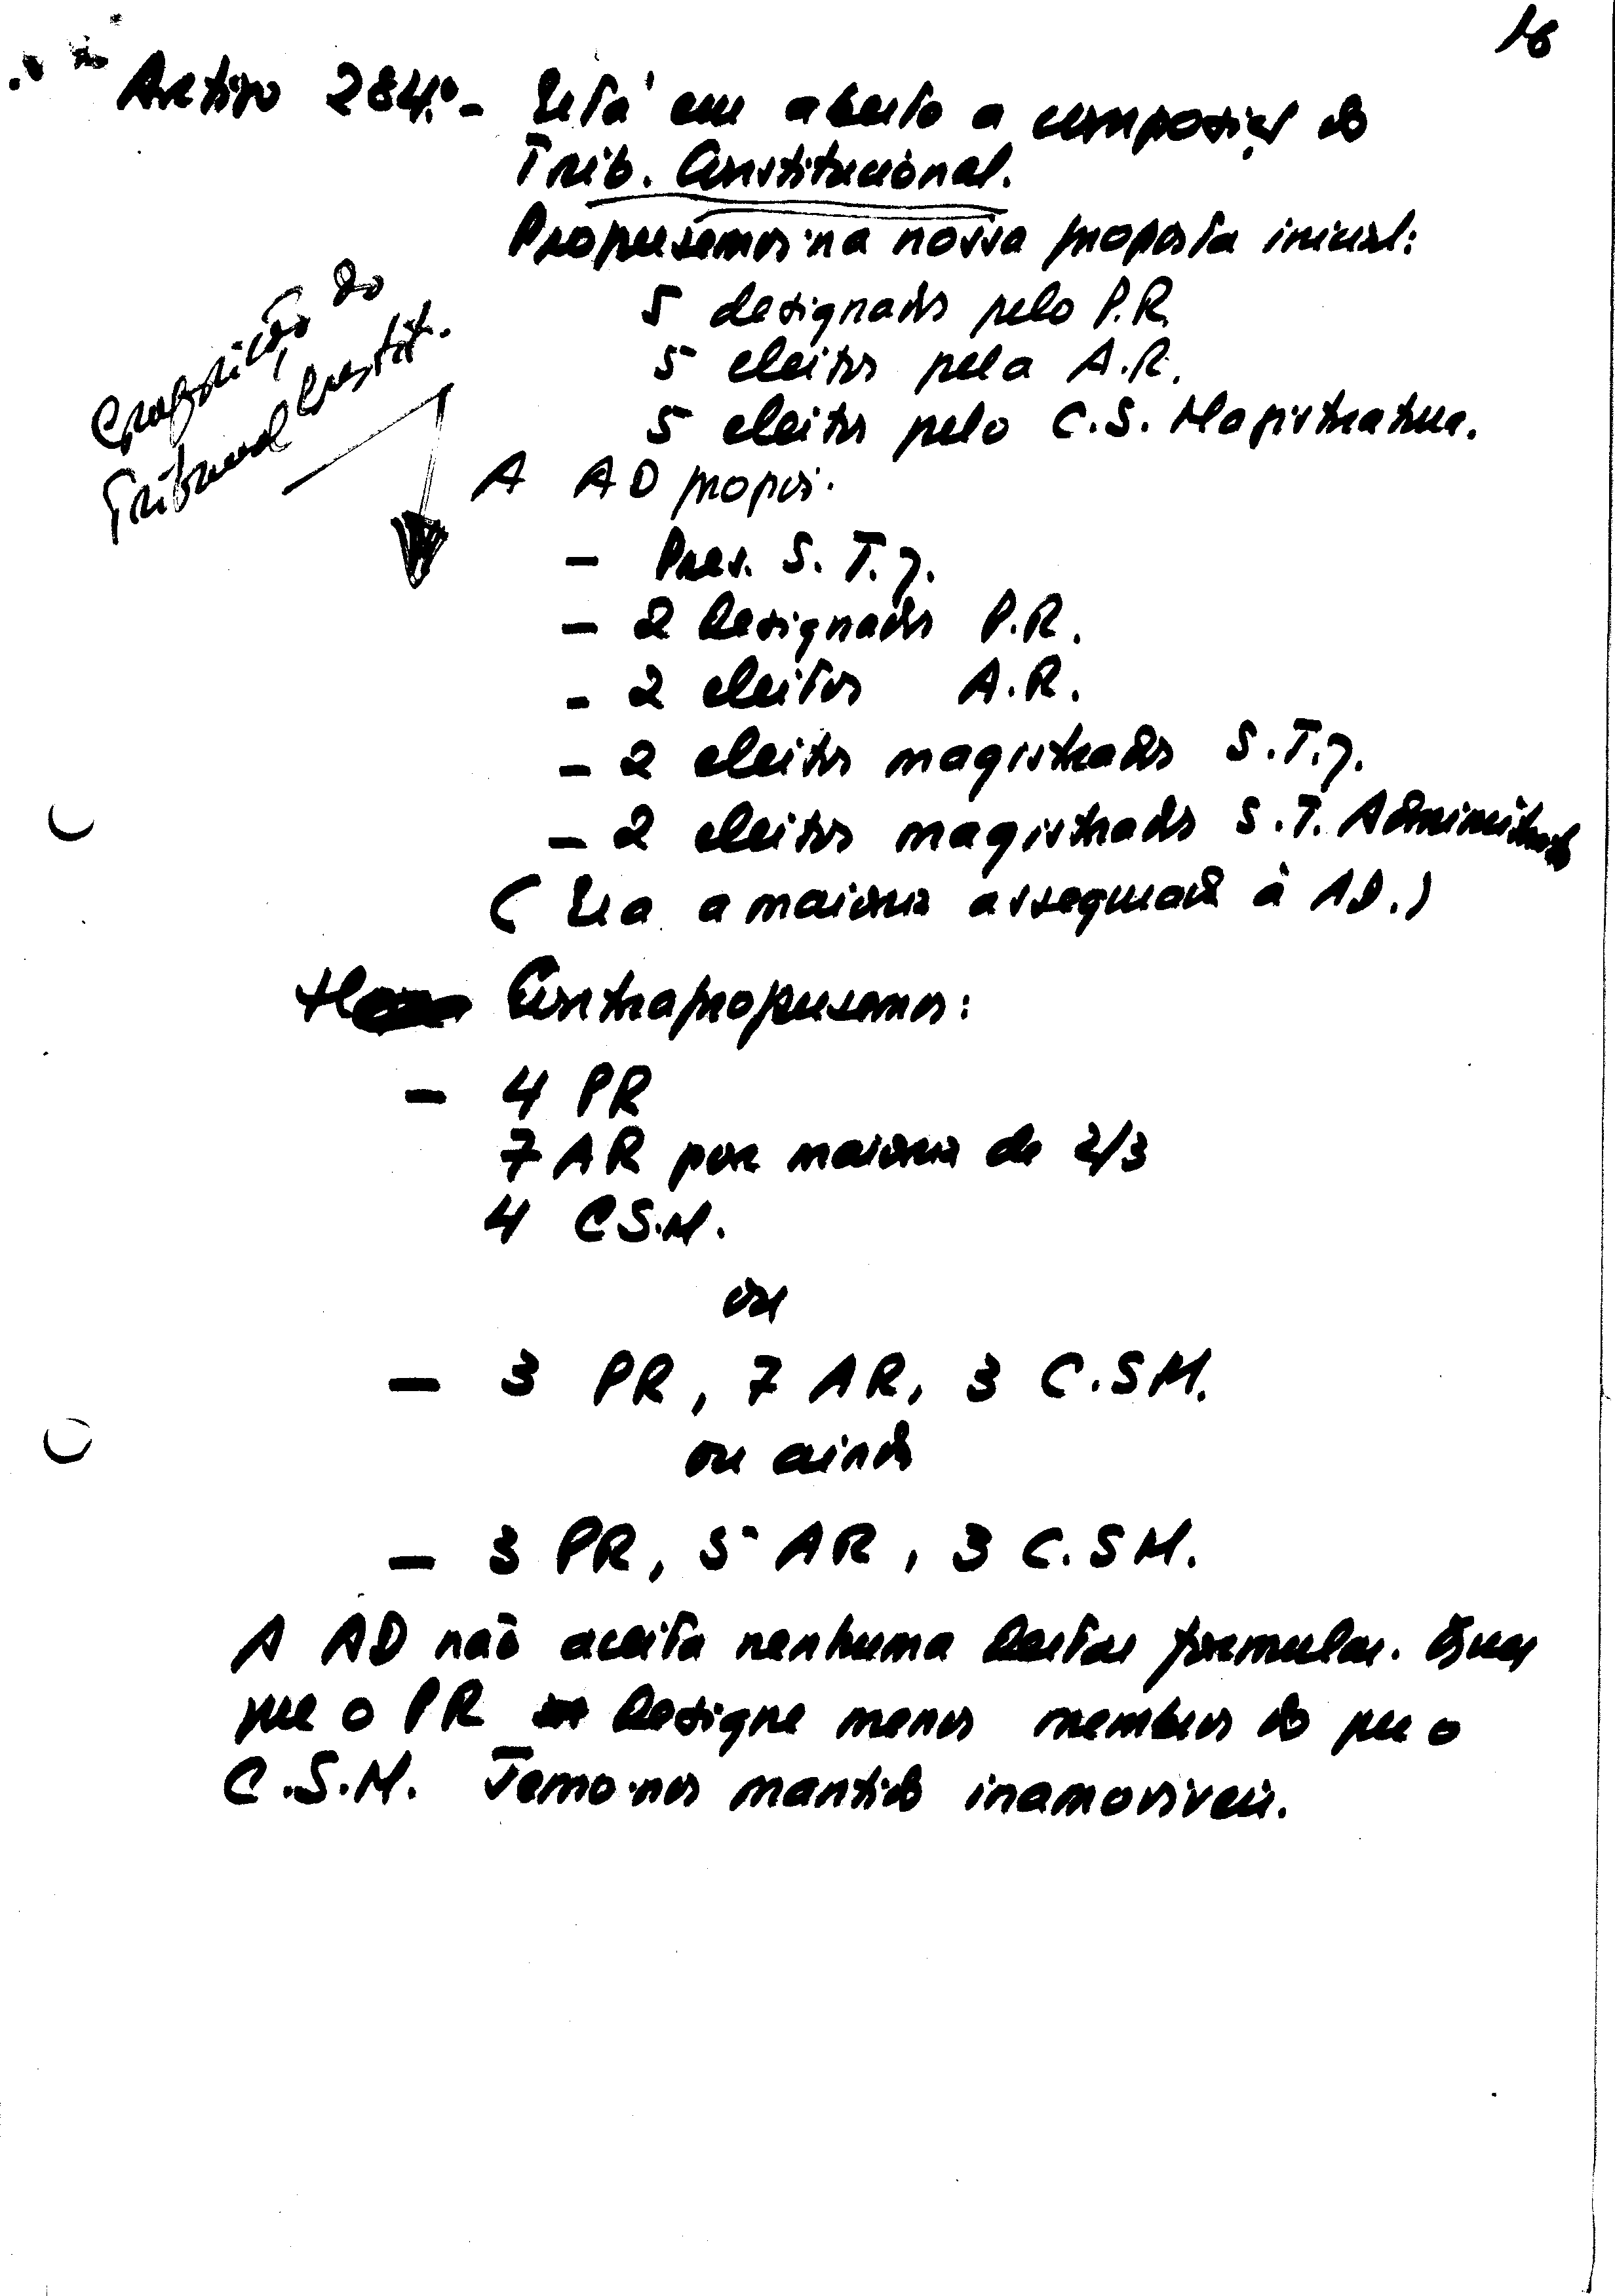 16
Artigo 284.º - Está em aberto a composição do
Trib. Constitucional.
Propusemos na nossa proposta inicial:
5 designados pelo P.R.
5 eleitos pela A.R.
5 eleitos pelo C.S. Magistratura.
Composição do
Tribunal Constit.
A AD propôs.
- Pres. S.T.J.
- 2 designados P.R.
- 2 eleitos A.R.
- 2 eleitos magistrados S.T.J.
- 2 eleitos magistrados S.T. Administrativo
(Era a maioria assegurada à AD.)
Contrapropusemos:
- 4 PR
7 AR por maioria de 2/3
4 C.S.M.
ou
- 3 PR, 7 AR, 3 C.S.M.
ou ainda
- 3 PR, 5 AR, 3 C.S.M.
A AD não aceita nenhuma destas fórmulas. Quer
que o PR designe menos membros do que o
C.S.M. Temo-nos mantido inamovíveis.